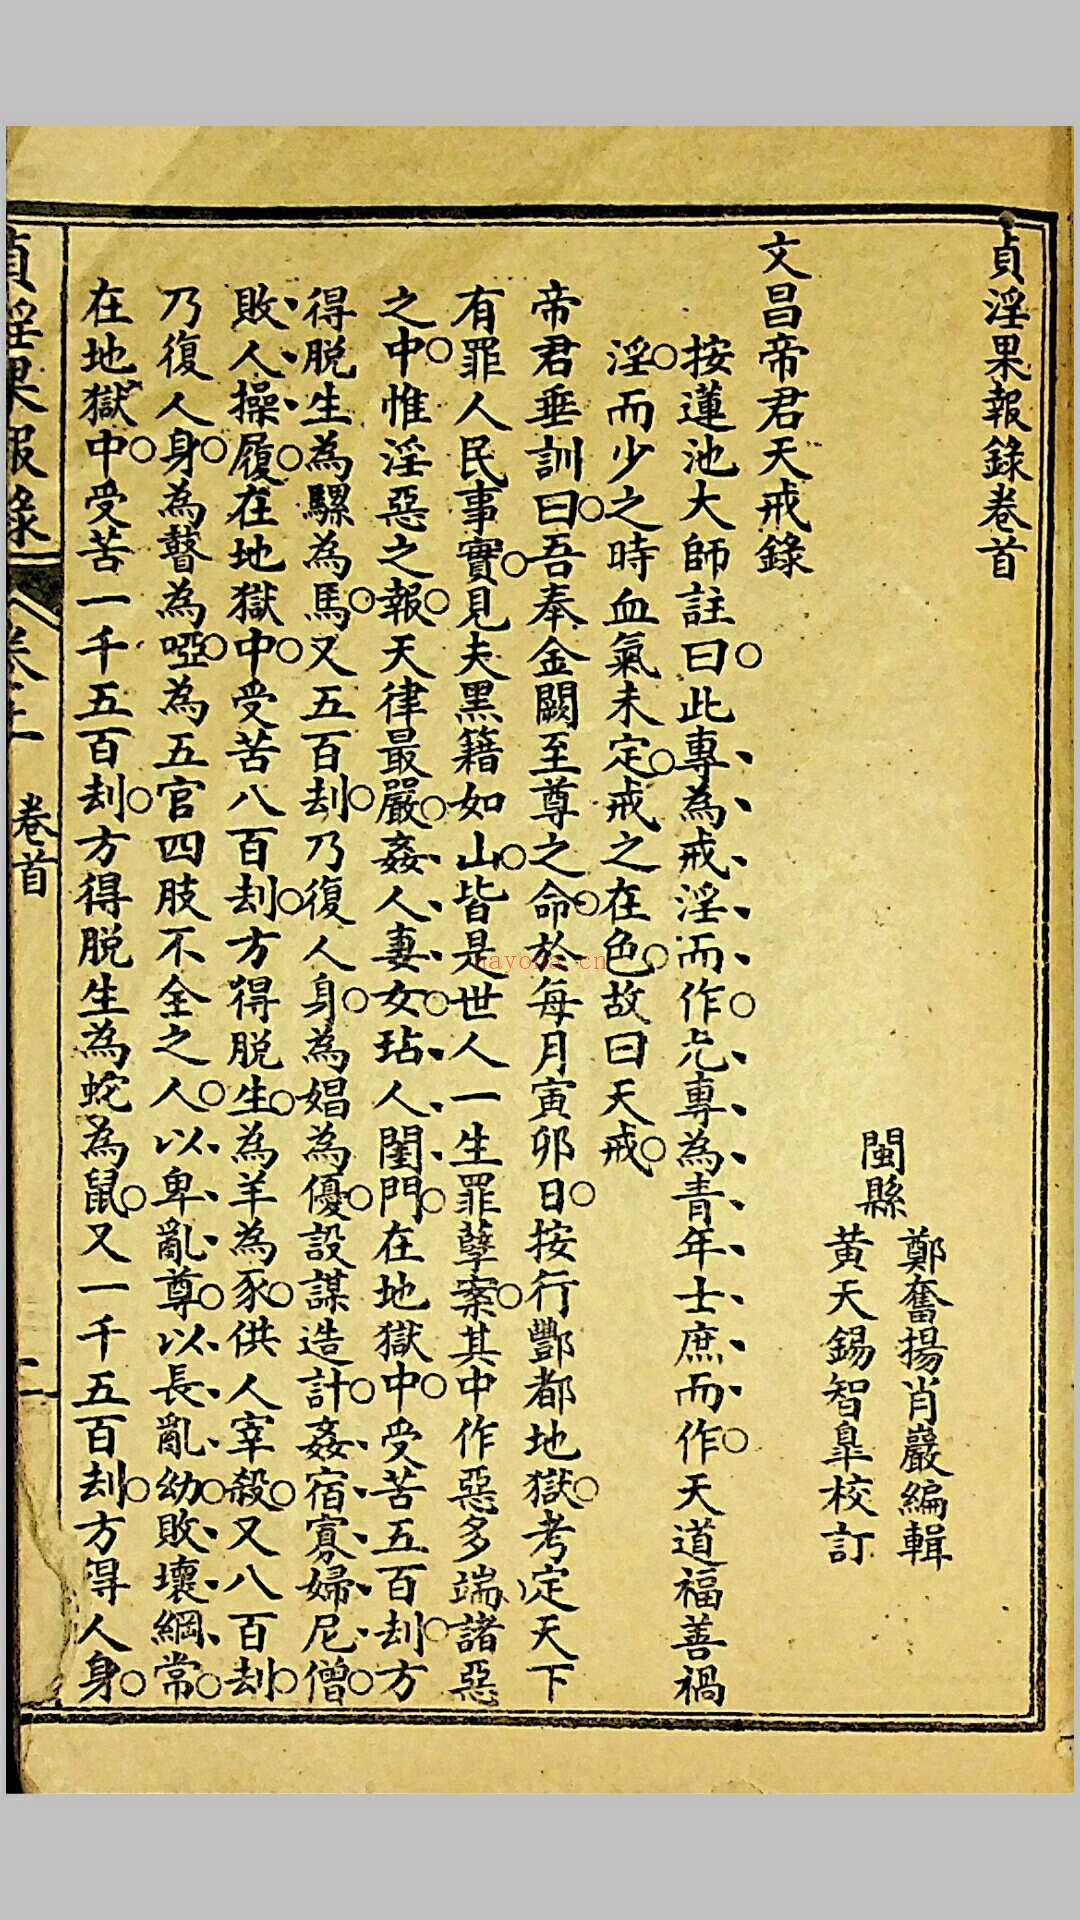 貞淫果報錄卷首
閩縣
鄭奮揚肖巖編輯
黄天錫智臯校訂
文昌帝君天戒錄
按蓮池大師註曰此專為戒淫而作尤專為青年士庶而作天道福善禍
淫而少之時血氣未定戒之在色故曰天戒
帝君垂訓曰吾奉金闕至尊之命於每月寅卯日按行酆都地獄考定天下
有罪人民事實見夫黑籍如山皆是世人一生罪孽案其中作惡多端諸惡
之中惟淫惡之報天律最嚴姦人妻女玷人閨門在地獄中受苦五百刦方
得脱生為騾為馬又五百刦乃復人身為娼為優設謀造計姦宿寡婦尼僧
敗人操履在地獄中受苦八百刦方得脱生為羊為豕供人宰殺又八百刦
乃復人身為瞽為啞為五官四肢不全之人以卑亂尊以長亂幼敗壞綱常
在地獄中受苦一千五百刦方得脱生為蛇為鼠又一千五百刦方得人身
貞淫果報錄
卷首
二
nayona.cn